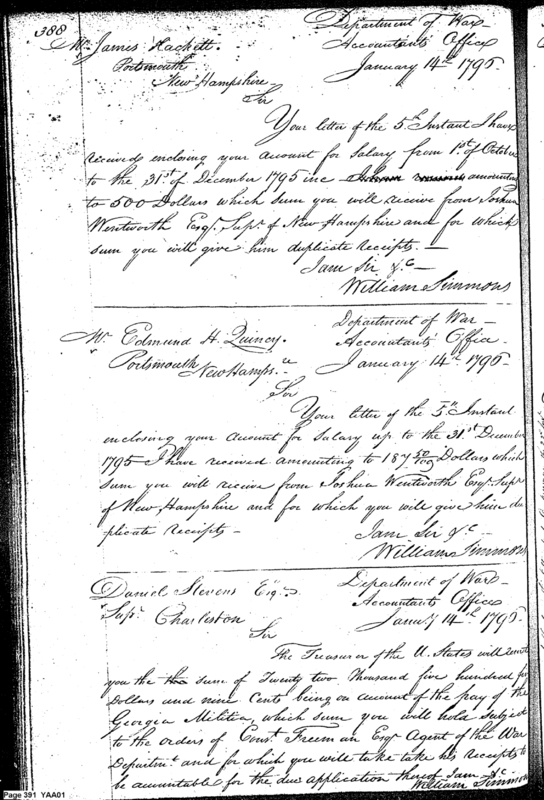 388
Department of War
Mr. James Hackett.
Accountants Office
Portsmouth
January 14th 1795.
New Hampshire
Sir
Your letter of the 5th Instant I have
received enclosing your account for Salary from 1st of October
to the 31st of December 1795 inc amounting
to 500 Dollars which sum you will receive from Joshua
Wentworth Esqr. Supr. of New Hampshire and for which
sum you will give him duplicate receipts. —
I am Sir &c —
William Simmons
Department of War —
Mr. Edmund H. Quincy.
Accountants Office.
Portsmouth
January 14th 1795.
New Hamps.
Sir
Your letter of the 5th Instant
enclosing your account for Salary up to the 31st December
1795 I have received amounting to 187 50/100 Dollars which
sum you will receive from Joshua Wentworth Esqr. Supr
of New Hampshire and for which you will give him du
plicate receipts —
I am Sir &c —
William Simmons
Department of War
Daniel Stevens Esqr.
Accountants Office
Supr. Charleston
Janu'y 14th 1795.
Sir
The Treasurer of the U. States will remit
you the the sum of Twenty two Thousand five hundred
Dollars and nine Cents being on account of the pay of the
Georgia Militia, which sum you will hold subject
to the orders of Const. Freeman Esqr Agent of the War
Departmt. and for which you will take take his Receipts to
be accountable for the due application thereof I am &c
William Simmons
Page 391 YAA01